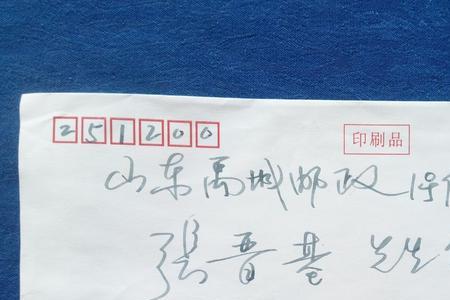 251200
印刷品
山东禹城邮政
張晋基 先生